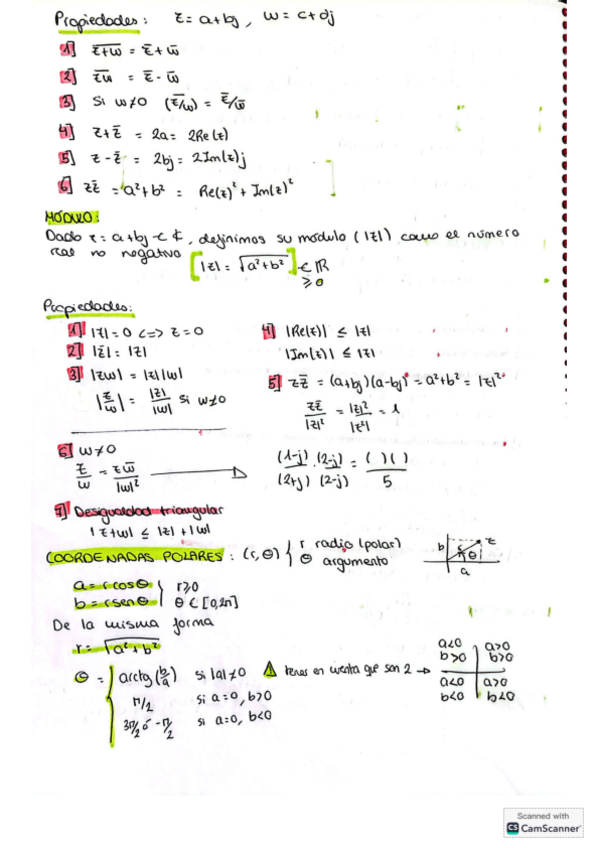 Propiedades: z = a+bj , w = c+dj
1] \overline{z+w} = z̄ + w̄
2] \overline{zw} = z̄ - w̄
3] Si w≠0 (\overline{z/w}) = z̄/w̄
4] z+z̄ = 2a = 2Re(z)
5] z - z̄ = 2bj = 2Im(z)j
6] zz̄ = a²+b² = Re(z)² + Im(z)²
MÓDULO:
Dado z = a+bj ∈ ₵, definimos su módulo (|z|) como el número
real no negativo [|z| = √(a²+b²)] ∈ ℝ≥0
Propiedades:
1] |z| = 0 <=> z = 0
2] |z̄| = |z|
3] |zw| = |z||w|
|z/w| = |z|/|w| si w≠0
4] |Re(z)| ≤ |z|
|Im(z)| ≤ |z|
5] zz̄ = (a+bj)(a-bj) = a²+b² = |z|²
zz̄/|z|² = |z|²/|z²| = 1
6] w≠0
z/w = zw̄/|w|² → (1-j)/(2+j) · (2-j)/(2-j) = ( )( )/5
7] Desigualdad triangular
|z+w| ≤ |z| + |w|
COORDENADAS POLARES: (r, θ) { r radio (polar)
θ argumento
b r θ z
a
a = r cos θ } r≥0
b = r sen θ } θ ∈ [0, 2π]
De la misma forma
r = √(a²+b²)
θ = { arctg (b/a) si |a| ≠ 0 ⚠ tenas en cuenta que son 2 →
π/2 si a=0, b>0
3π/2 ó -π/2 si a=0, b<0
a<0 b>0 | a>0 b>0
a<0 b<0 | a>0 b<0
Scanned with
CS CamScanner